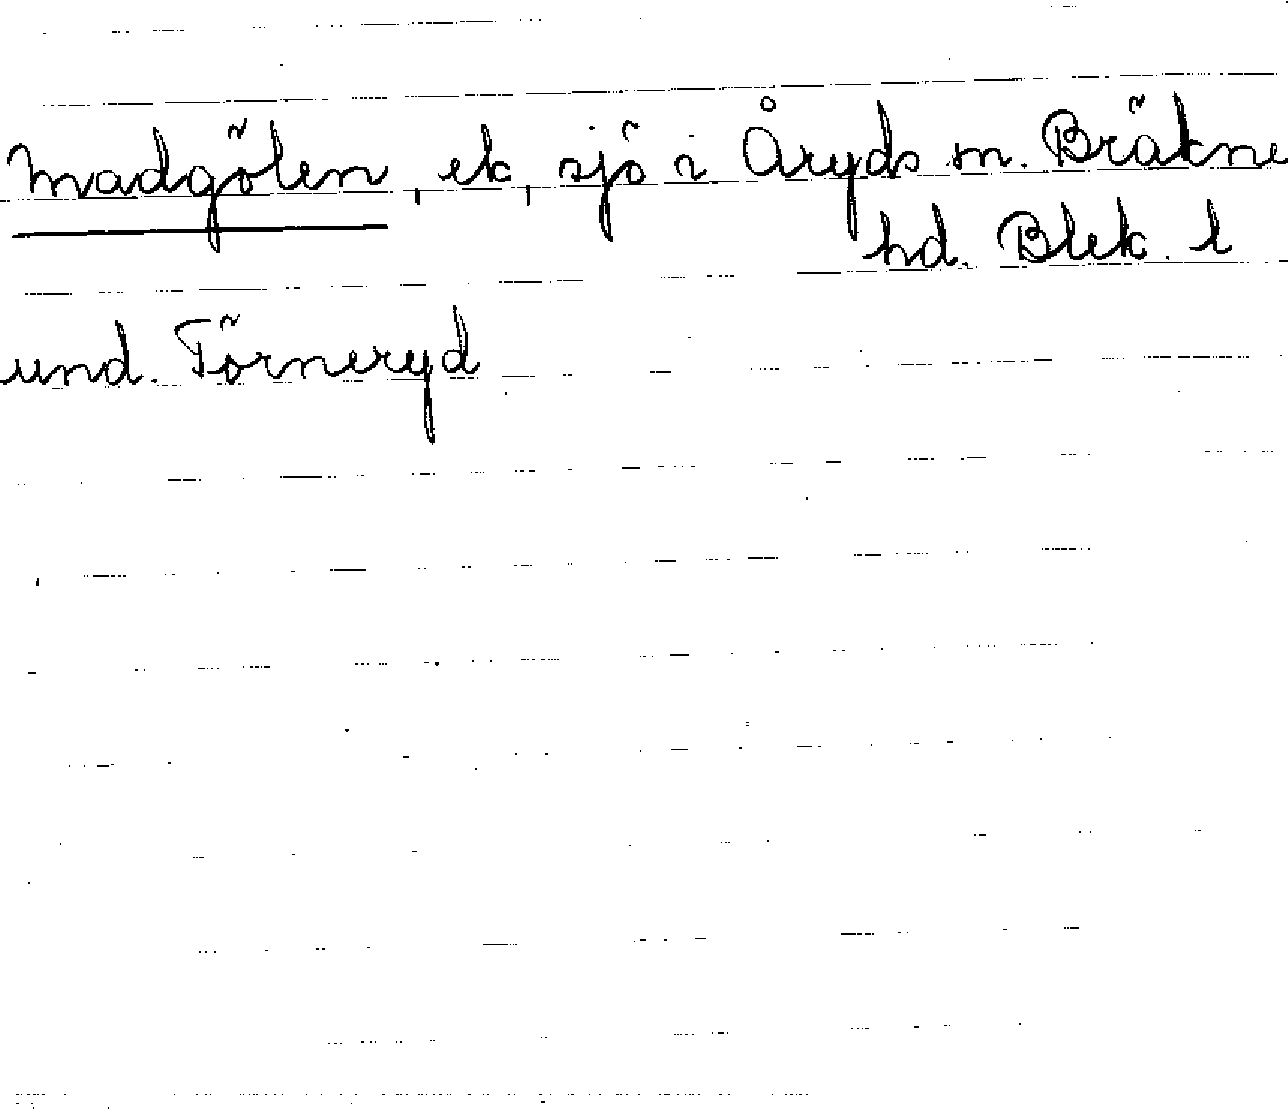 Madgölen, ek, sjö i Åryds sn. Bräkne
hd. Blek. l
und. Törneryd